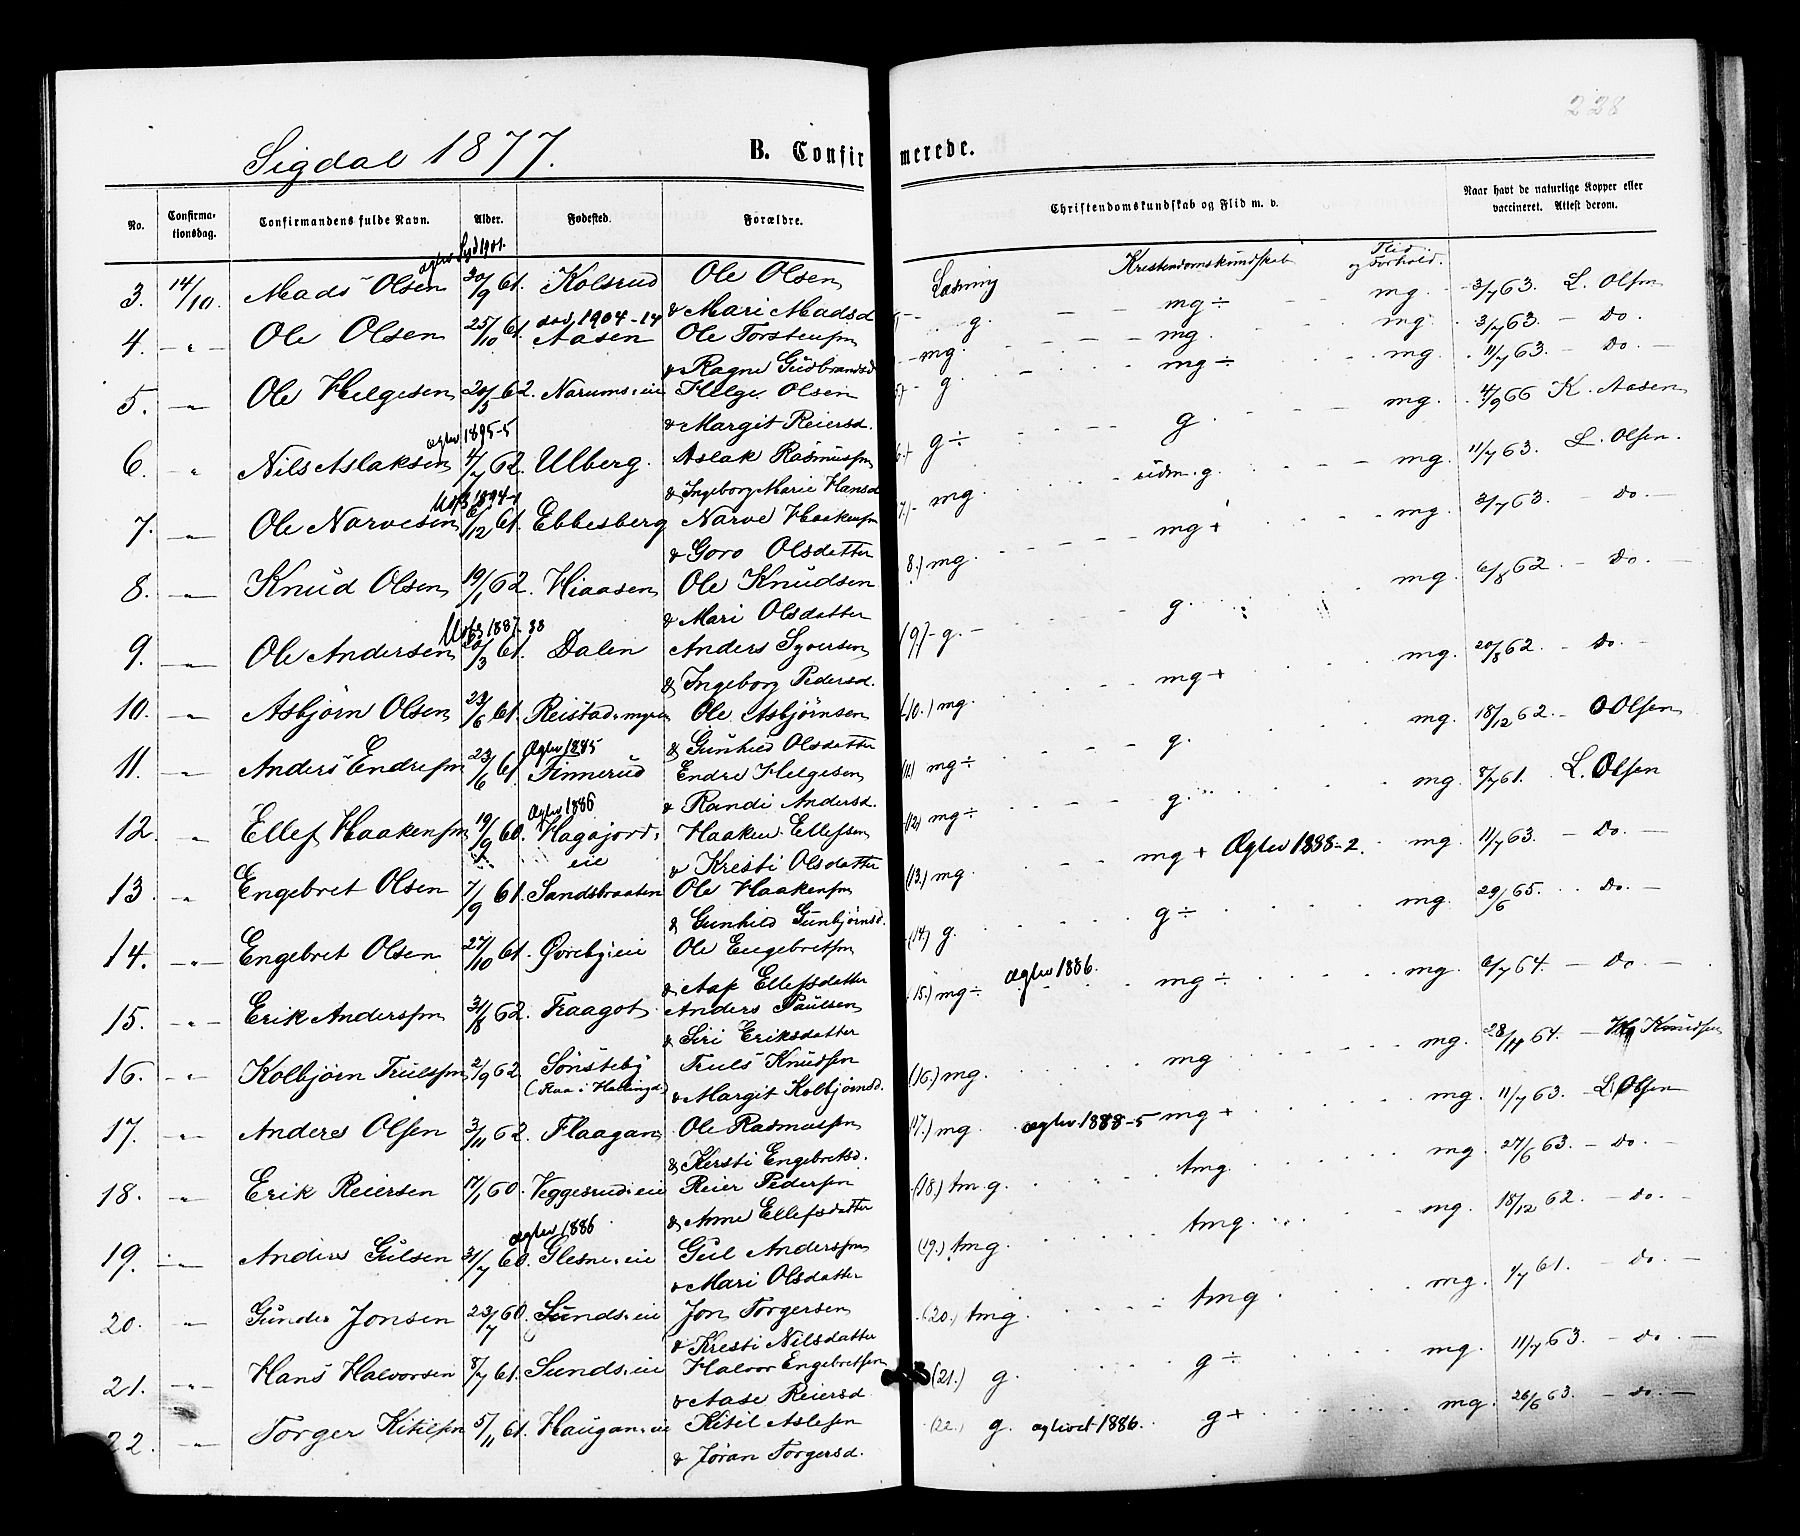 228
Sigdal 1877.
B. Confirmerede.
No. Confirmationsdag. Confirmandens fulde Navn. Alder. Fødested. Forældre. Christendomskundskab og Flid m. v. Naar havt de naturlige Kopper eller vaccineret. Attest derom.
Læsning Kristendomskundskab Flid og Forhold.
3. 14/10. Mads Olsen 30/9 61. Kolsrud Ole Olsen mg ÷ mg. 3/7 63. L. Olsen
& Mari Madsd
4. " Ole Olsen 25/10 61. død 1904-14 Aasen Ole Torstensen g. mg. mg. 3/7 63. Do.
& Ragne Gudbrandsd
5. " Ole Helgesen 20/5 62. Narums. eie Helge Olsen mg. mg ÷ mg. 11/7 63. Do.
& Margit Reiersd.
6. " Nils Aslaksen 4/7 62. Ulberg. Aslak Rasmussen g ÷ g. mg. 4/9 66 K. Aasen
& Ingeborg Marie Hansd
7. " Ole Narvesen 6/12 61. Ebbesberg Narve Haakensen 7.) mg udm. g. mg. 11/7 63. L. Olsen.
& Goro Olsdatter
8. " Knud Olsen 19/1 62. Hiaasen Ole Knudsen 8.) mg. mg + mg. 3/7 63. Do.
& Mari Olsdatter
9. " Ole Andersen 61. Dalen Anders Syversen (9) g. g. mg. 6/8 62. Do.
& Ingeborg Pedersd.
10. " Asbjørn Olsen 23/6 61. Reistad. myren Ole Asbjørnsen (10.) mg. mg + mg. 20/8 62. Do.
& Gunhild Olsdatter
11. " Anders Endresen 23/6 61. Øglev 1885 Finnerud Endre Helgesen (11) mg ÷ g. mg. 18/12 62. O Olsen
& Randi Andersd.
12. " Ellef Haakensen 19/9 60. Øglev 1886 Hagajord. eie Haaken Ellefsen (12) mg ÷ g. mg. 8/7 61. L. Olsen
& Kresti Olsdatter
13. " Engebret Olsen 7/9 61. Sandsbraaten Ole Haakensen (13.) mg. mg + Øglev 1888-2. mg. 11/7 63. Do.
& Gunhild Gunbjørnsd.
14. " Engebret Olsen 27/10 61. Øvreby. eie Ole Engebretsen (14) g. g ÷ mg. 29/6 65. Do.
& Aase Ellefsdatter
15. " Erik Anderssen 3/8 62. Fraagot Anders Paulsen (15.) mg ÷ øglev 1886. mg ÷ mg. 6/7 64. Do.
& Siri Eriksdatter
16. " Kolbjørn Trulssen 2/9 62. Sønsteby Truls Knudsen (16.) mg. mg mg. 64. Knudsen
(Raa i Hallingd.) & Margit Kolbjørnsd.
17. " Anders Olsen 3/11 62. Flaagan Ole Rasmussen (17.) mg øglev 1888-5 mg + mg. 11/7 63. L. Olsen
& Kersti Engebretsd.
18. " Erik Reiersen 17/1 60. Veggesrud. eie Reier Pedersen (18.) tm.g. tmg. mg. 27/6 63. Do.
& Anne Ellefsdatter
19. " Anders Gulsen 31/7 60. øglev 1886 Glesne. eie Gul Anderssen (19.) tmg. tmg. mg. 18/12 62. Do.
& Mari Olsdatter
20. " Gunder Jonsen 23/7 60. Sunds. eie Jon Torgersen (20.) tmg. tmg mg. 1/7 61. Do.
& Kresti Nilsdatter
21. " Hans Halvorsen 8/7 61. Sunds. eie Halvor Engebretsen (21.) g. g ÷ mg. 11/7 63. Do.
& Aase Reiersd.
22. " Torger Kitilsen 5/11 61. Haugan. eie Kitil Aslesen (22.) g. øglevet 1886. g + mg. 26/6 63. Do.
& Jøran Torgersd.